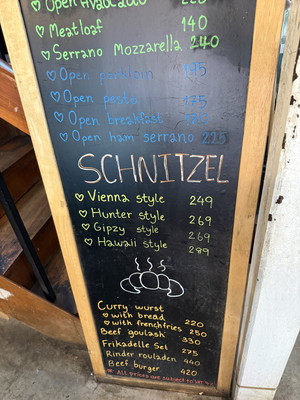 Open Avocado 220
♡ Meatloaf 140
♡ Serrano Mozzarella 240
♡ Open porcelain 195
♡ Open pesto 175
♡ Open breakfast
♡ Open ham serrano 225
SCHNITZEL
♡ Vienna style 249
♡ Hunter style 269
♡ Gipzy style 269
♡ Hawaii style 289
Curry wurst
♡ with bread 220
♡ with frenchfries 250
Beef goulash 330
Frikadelle Set 275
Rinder rouladen 440
Beef burger 420
All prices are subject to VAT